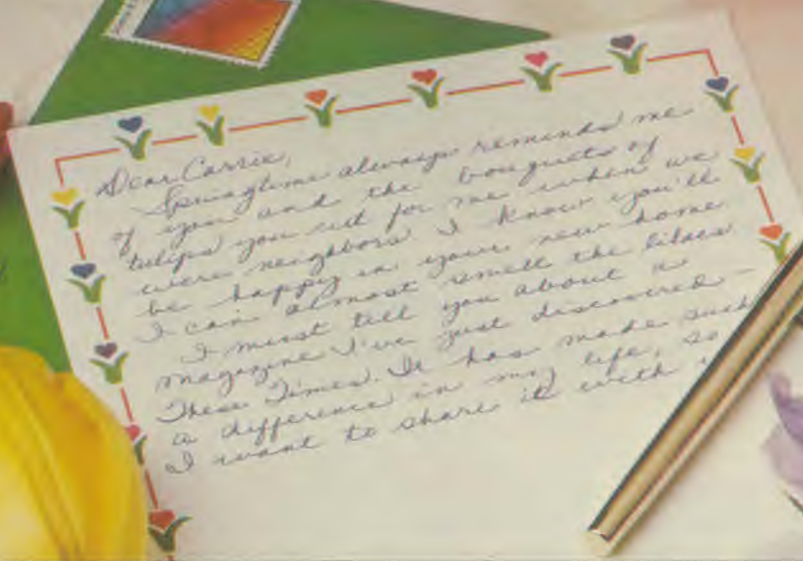 Dear Carrie,
Springtime always reminds me
of you and the bouquets of
tulips you cut for me when we
were neighbors. I know you'll
be happy in your new home
I can almost smell the lilacs
I must tell you about a
magazine I've just discovered –
These Times. It has made such
a difference in my life, so
I want to share it with